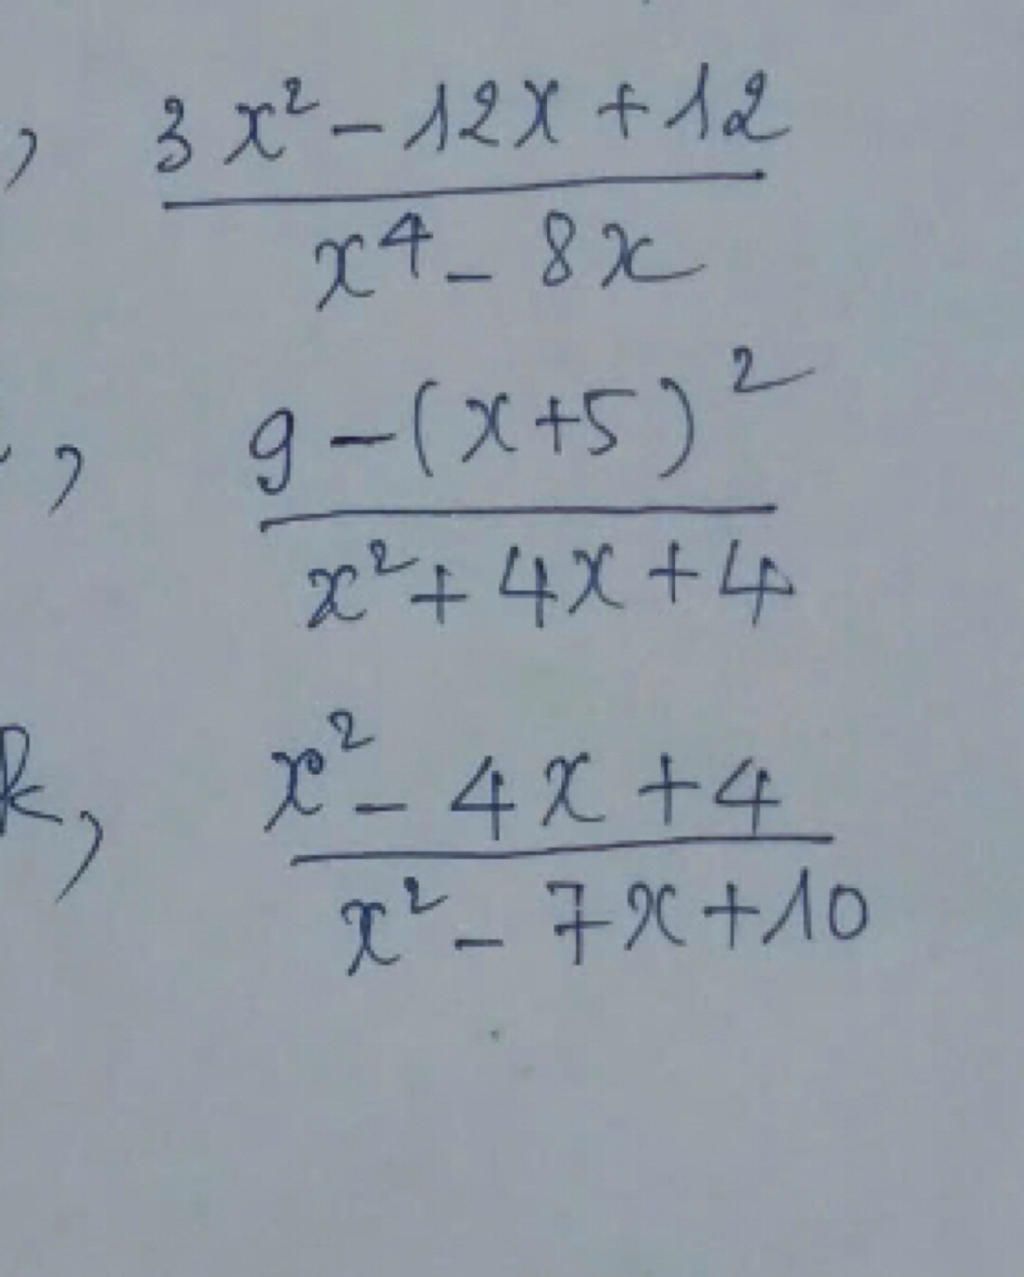 , 3x² - 12x + 12
x⁴ - 8x
, 9 - (x+5)²
x² + 4x + 4
k, x² - 4x + 4
x² - 7x + 10